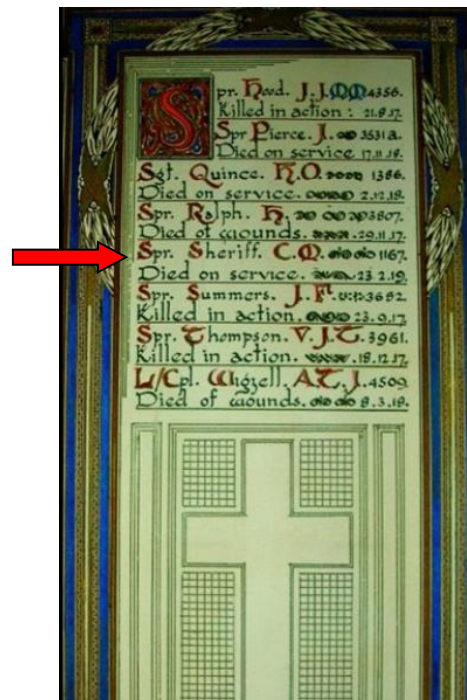 Spr. Hood. J. J. M. 4356.
Killed in action : 21.8.17.
Spr Pierce. J. 3531a.
Died on service 17.11.18.
Sgt. Quince. H. O. 1386.
Died on service. 2.12.18.
Spr. Ralph. H. 3807.
Died of wounds. 29.11.17.
Spr. Sheriff. C. M. 1167.
Died on service. 23.2.19.
Spr. Summers. J. F. 3682.
Killed in action. 23.9.17.
Spr. Thompson. V. J. T. 3961.
Killed in action. 18.12.17.
L/Cpl. Wigzell. A. T. J. 4509.
Died of wounds. 8.3.18.